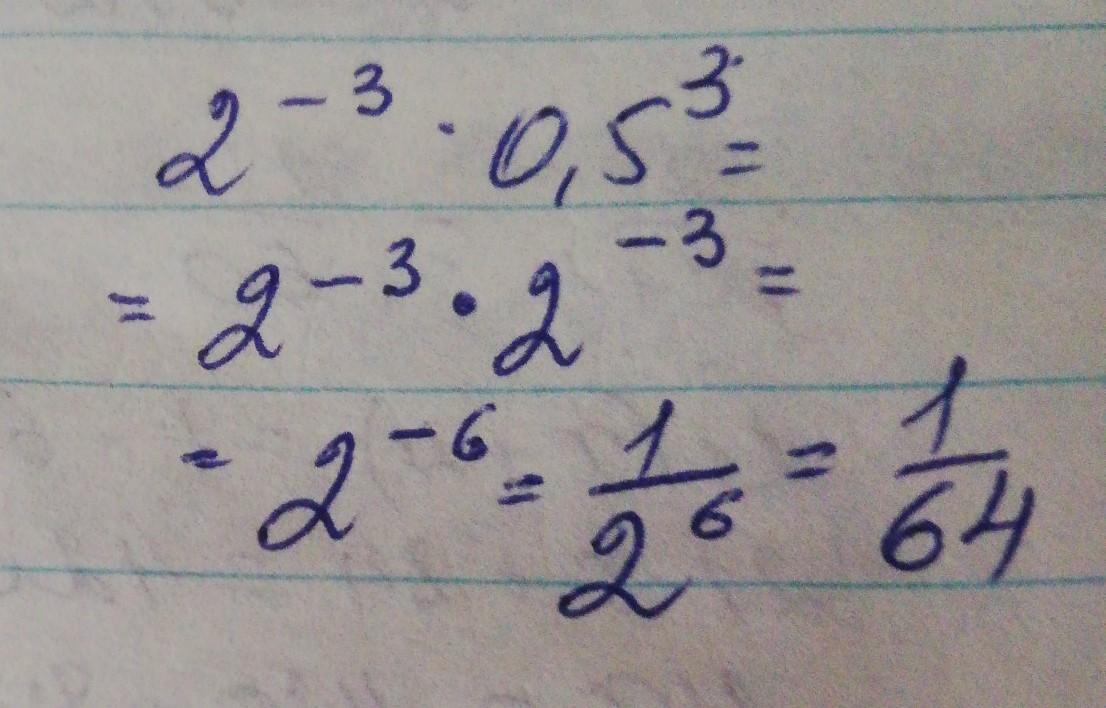 2⁻³ · 0,5³ =
= 2⁻³ · 2⁻³ =
= 2⁻⁶ = 1/2⁶ = 1/64